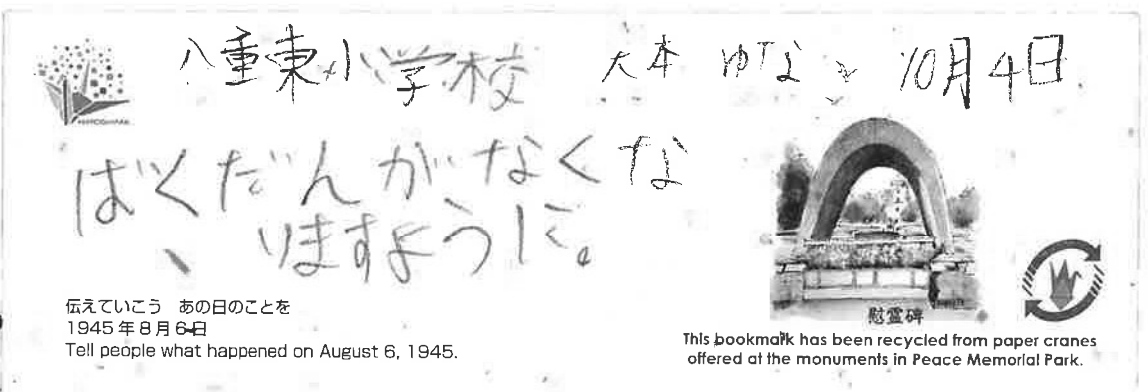 八重東小学校 大本 ゆな 10月4日
ばくだんがなくな
りますように。
HIROSHIMA
慰霊碑
伝えていこう あの日のことを
1945年8月6日
Tell people what happened on August 6, 1945.
This bookmark has been recycled from paper cranes
offered at the monuments in Peace Memorial Park.